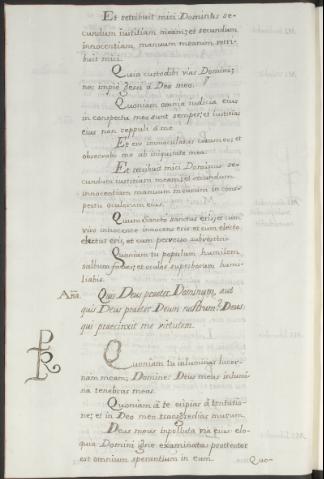 Et retribuit mihi Dominus se-
cundum iustitiam meam; et secundum
innocentiam manuum mearum retri-
buit mihi.
Quia custodivi vias Domini;
nec impie gessi á Deo meo.
Quoniam omnia iudicia eius
in conspectu meo sunt semper; et iustitias
eius non reppuli á me.
Et ero immaculatus cum eo; et
observabo me ab iniquitate mea.
Et retribuit mihi Dominus se-
cundum iustitiam meam; et secundum
innocentiam manuum mearum in cons-
pectu oculorum eius.
Cum sancto sanctus eris; et cum
viro innocente innocens eris et cum electo
electus eris, et cum perverso subverteris
Quoniam tu populum humilem
salbum facies; et oculos superborum humi-
liabis.
Aña. Quis Deus praeter Dominum, aut
quis Deus praeter Deum nostrum? Deus,
qui praecinxit me virtutem.
Quoniam tu iluminas lucer-
nam meam, Domine: Deus meus inlumi
na tenebras meas.
Quoniam á te eripiar á tentatio-
ne; et in Deo meo transgrediar murum.
Deus meus inpolluta via eius elo-
quia Domini igne examinata protector
est omnium sperantium in eum.
Quo-